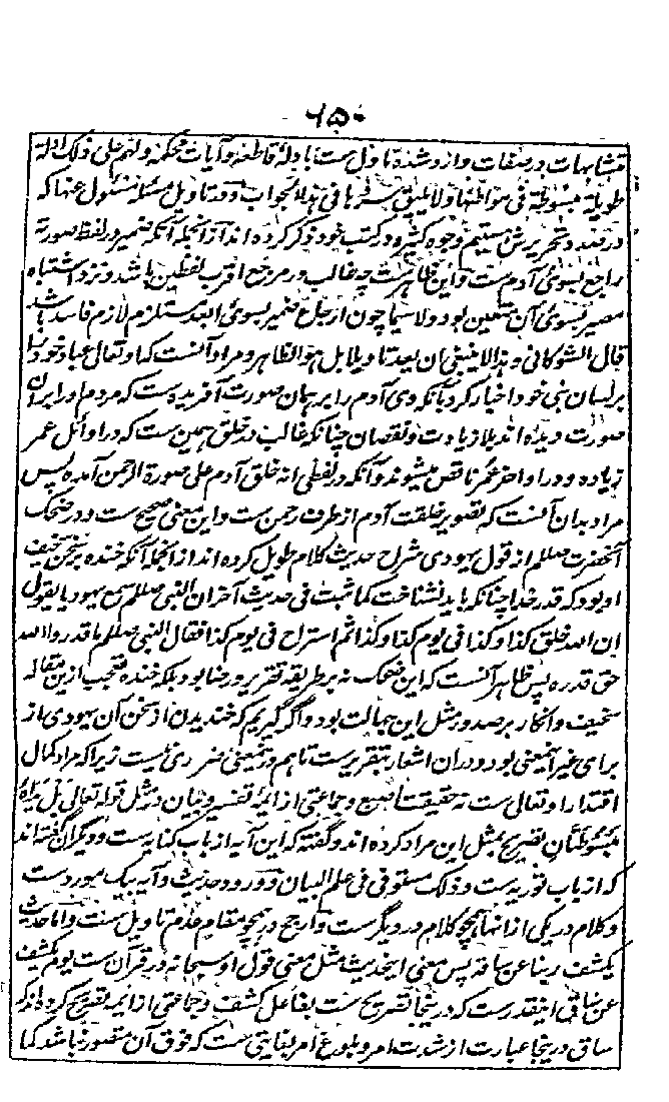 ۶۵۰
متشابهات در صفات وارد شده تاویل ست بادلهٔ قاطعه و آیات محکمه و لهم علی ذلک ادلة
طویلة مبسوطة فی مواطنها ولا یلیق بسطها فی هذا الجواب و در تاویل مسئله مسئول عنها که
درصدد تحریرش هستیم وجوه کثیره در کتب خود ذکر کرده اند از انجمله آنکه ضمیر در لفظ صورته
راجع بسوی آدم ست و این ظاهرست چه غالب در مرجع اقرب لفظین باشد و نزد اشتباه
مصیر بسوی آن متعین بود و لا سیما چون ارجاع ضمیر بسوی ابعد مستلزم لازم فاسد باشد
قال الشوکانی و هذا لا ینبغی ان یعد تاویلا بل هو الظاهر و مراد آنست که او تعالی عباد خود را
بر لسان نبی خود اخبار کرد بآنکه وی آدم را بر همان صورت آفریده ست که مردم او را بران
صورت دیده اند بلا زیادت و نقصان چنانکه غالب در خلق همین ست که در اوائل عمر
زیاده و در اواخر عمر ناقص میشوند و آنکه در لفظی انه خلق آدم علی صورة الرحمن آمده پس
مراد بدان آنست که تصویر خلقت آدم از طرف رحمن ست و این معنی صحیح ست و در ضحک
آنحضرت صللم از قول یهودی شراح حدیث کلام طویل کرده اند از انجمله آنکه خنده بر سخن سخیف
او بود که قدر خدا چنانکه باید نشناخت کما ثبت فی حدیث آخر ان النبی صللم سمع یهودیا یقول
ان الله خلق کذا و کذا فی یوم کذا و کذا ثم استراح فی یوم کذا فقال النبی صللم ما قدروا الله
حق قدره پس ظاهر آنست که این ضحک نه بر طریقه تقریر و رضا بود بلکه خنده تعجب ازین مقاله
سخیف و انکار بر صدور مثل این جهالت بود و اگر گیریم که خندیدن از سخن آن یهودی از
برای غیر اینمعنی بود و دران اشعار بتقریرست تا هم درینمعنی ضرری نیست زیرا که مراد کمال
اقتدار او تعالی ست نه حقیقت اصبع و جماعتی از ائمهٔ تفسیر و بیان در مثل قوله تعالی بل یداه
مبسوطتان تصریح بمثل این مراد کرده اند و گفته که این آیه از باب کنایه ست و دیگران گفته اند
که از باب توریه ست و ذلک مستوفی فی علم البیان و ورود حدیث و آیه بیک مورد ست
و کلام در یکی از انها همچو کلام در دیگر ست و ارجح در همچو مقام عدم تاویل ست و اما حدیث
یکشف ربنا عن ساقه پس معنی اینحدیث مثل معنی قول او سبحانه در قرآن ست یوم یکشف
عن ساق اینقدرست که در ینجا تصریح ست بفاعل کشف و جماعتی از ائمه تصریح کرده اند که
ساق درینجا عبارت از شدت امر و بلوغ امر بغایتی ست که فوق آن متصور نباشد کما